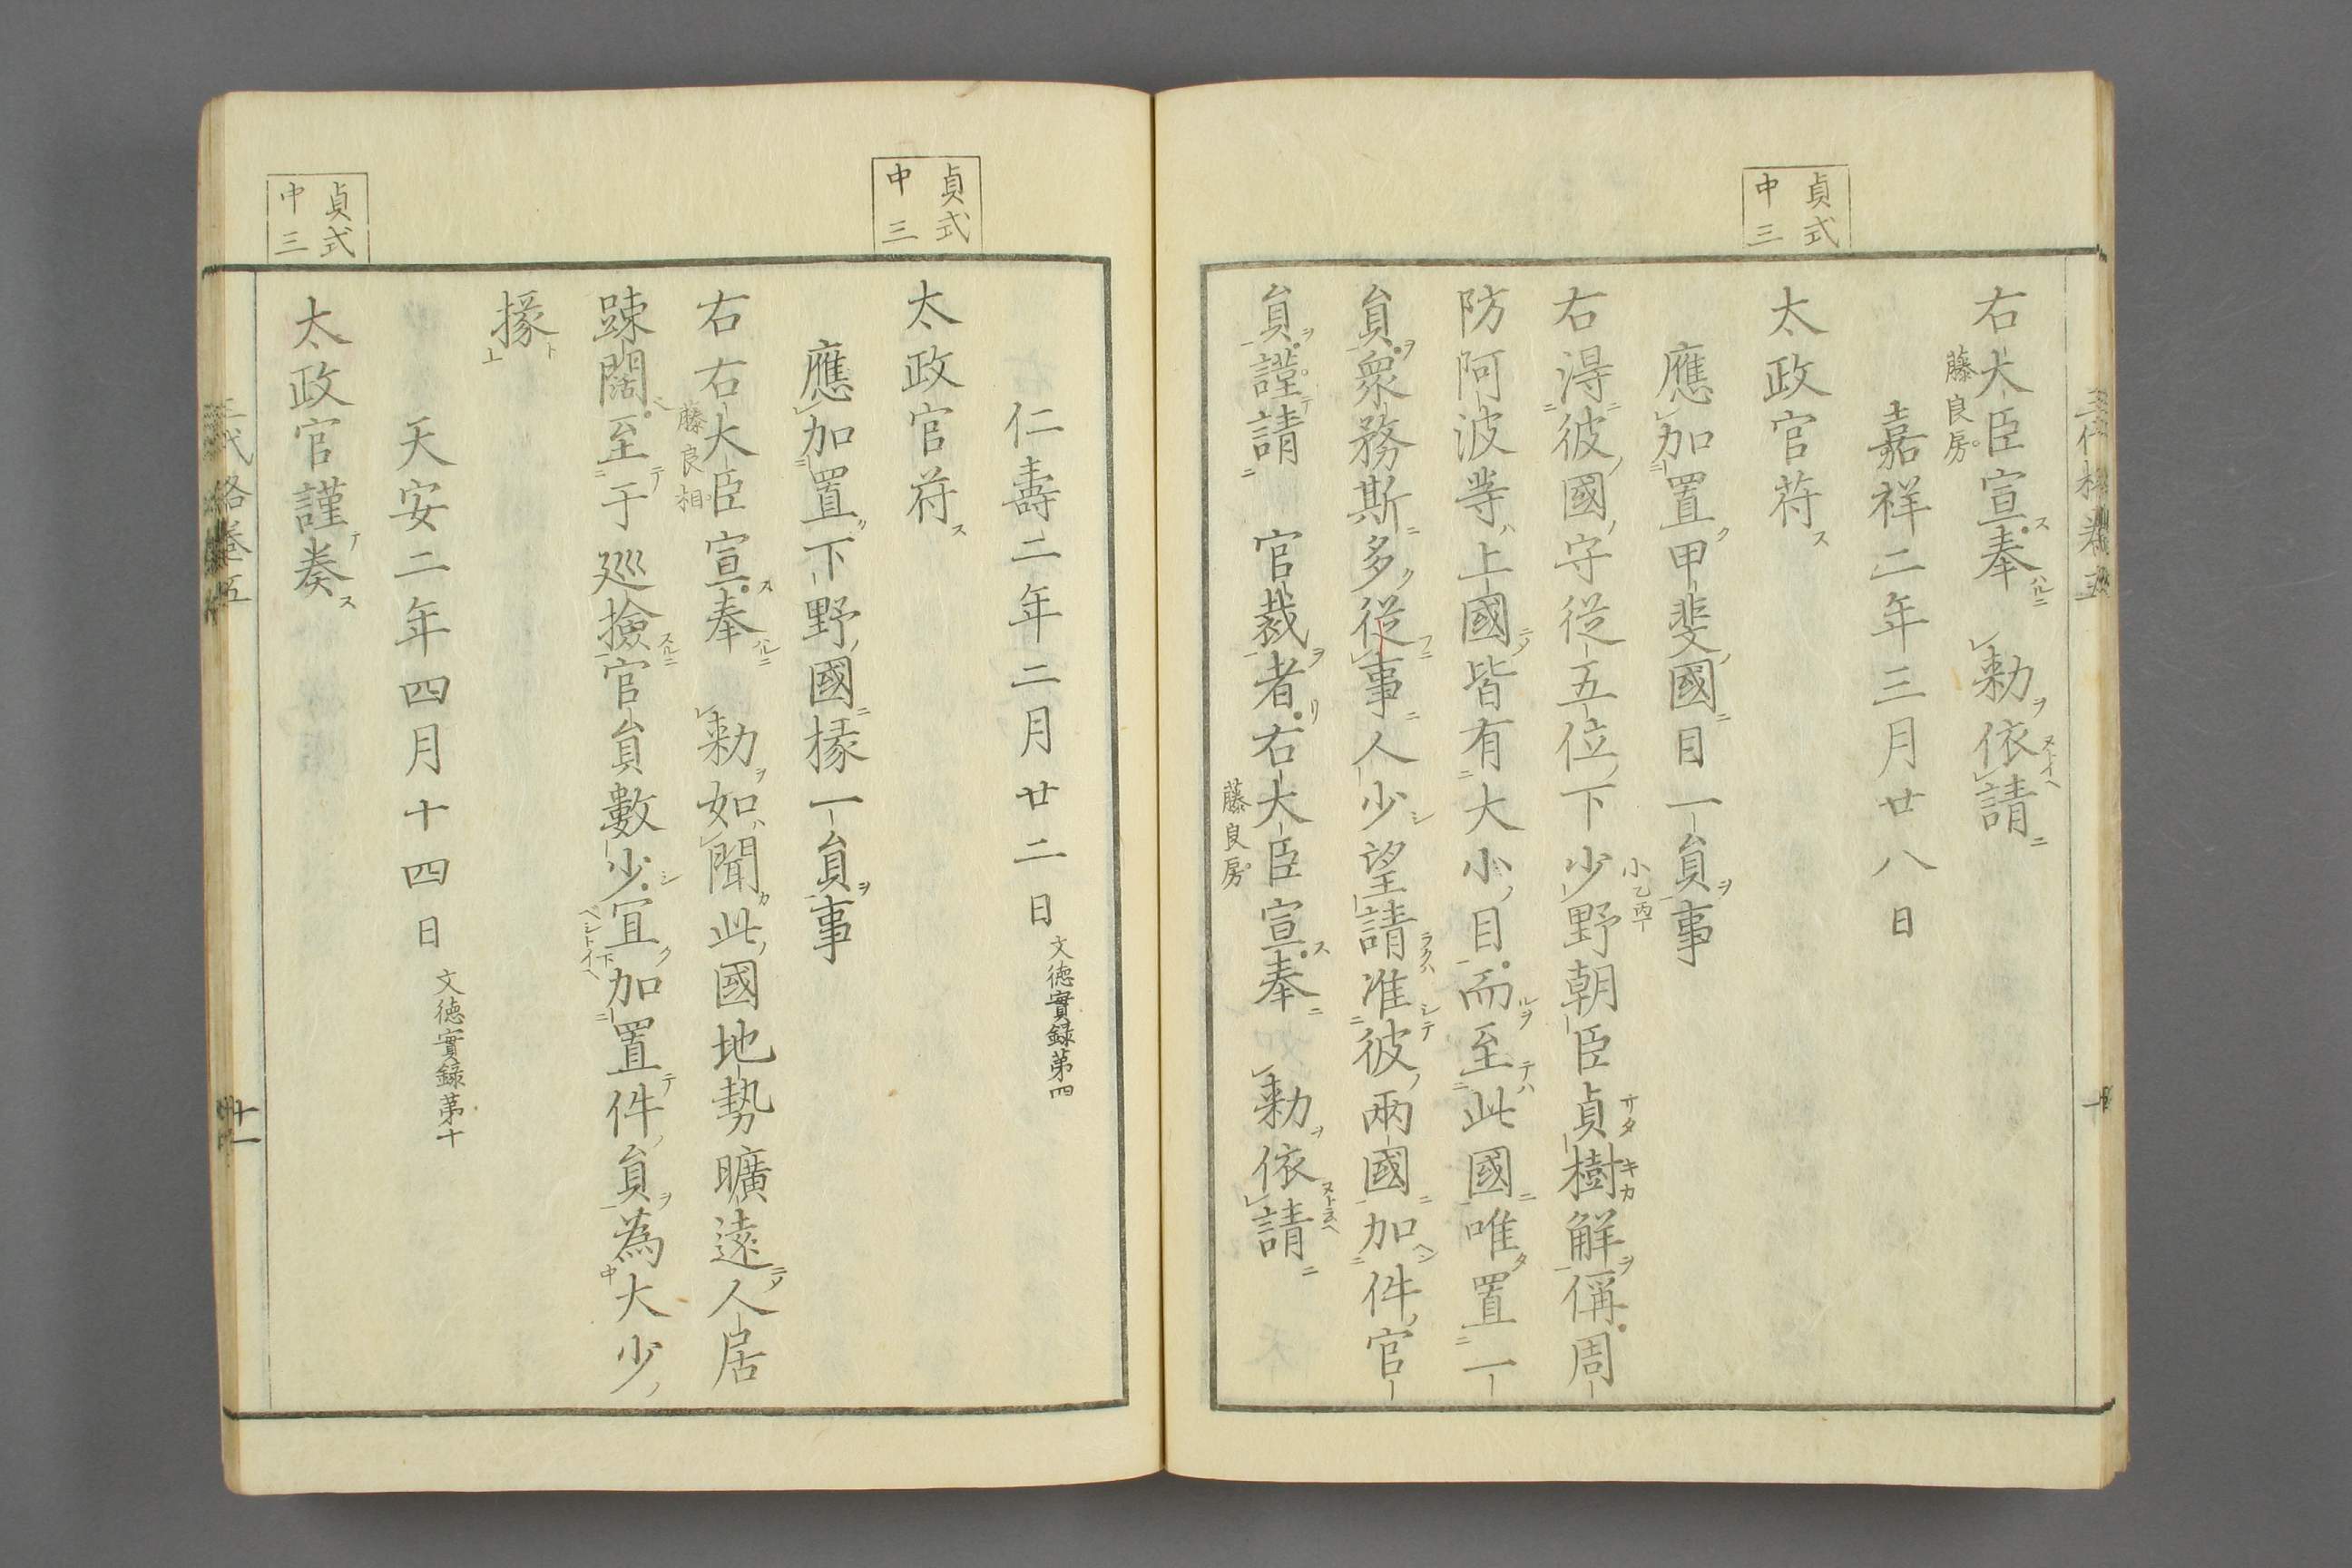 三代格卷五
十
右大臣宣奉 勅依請
藤良房
嘉祥二年三月廿八日
貞式
中三
太政官符
應加置甲斐國目一員事
右得彼國守從五位下少野朝臣貞樹解偁周
小乙丙
サタ キカ
防阿波等上國皆有大小目而至此國唯置一
員衆務斯多從事人少望請准彼兩國加件官
員謹請 官裁者右大臣宣奉 勅依請
藤良房
仁壽二年二月廿二日 文徳實録第四
貞式
中三
太政官符
應加置下野國掾一員事
右右大臣宣奉 勅如聞此國地勢曠遠人居
藤良相
踈闊至于巡撿官員數少宜加置件員為大少
掾
天安二年四月十四日 文徳實録第十
貞式
中三
太政官謹奏
三代格卷五
十一